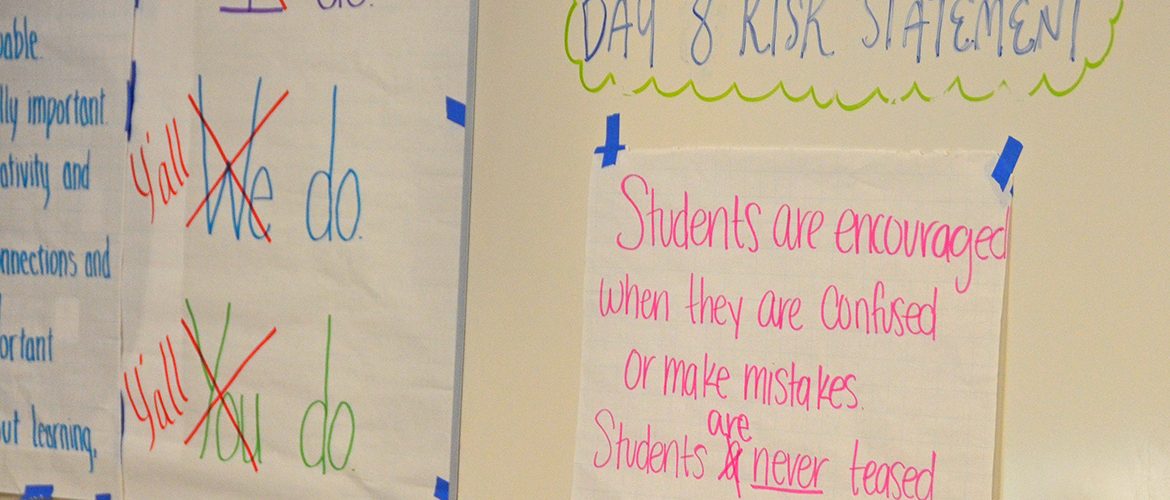 able.
lly important
ativity and
nnections and
ortant
ut learning,
do.
Y'all We do.
Y'all You do.
DAY 8 RISK STATEMENT
Students are encouraged
when they are confused
or make mistakes.
Students are never teased